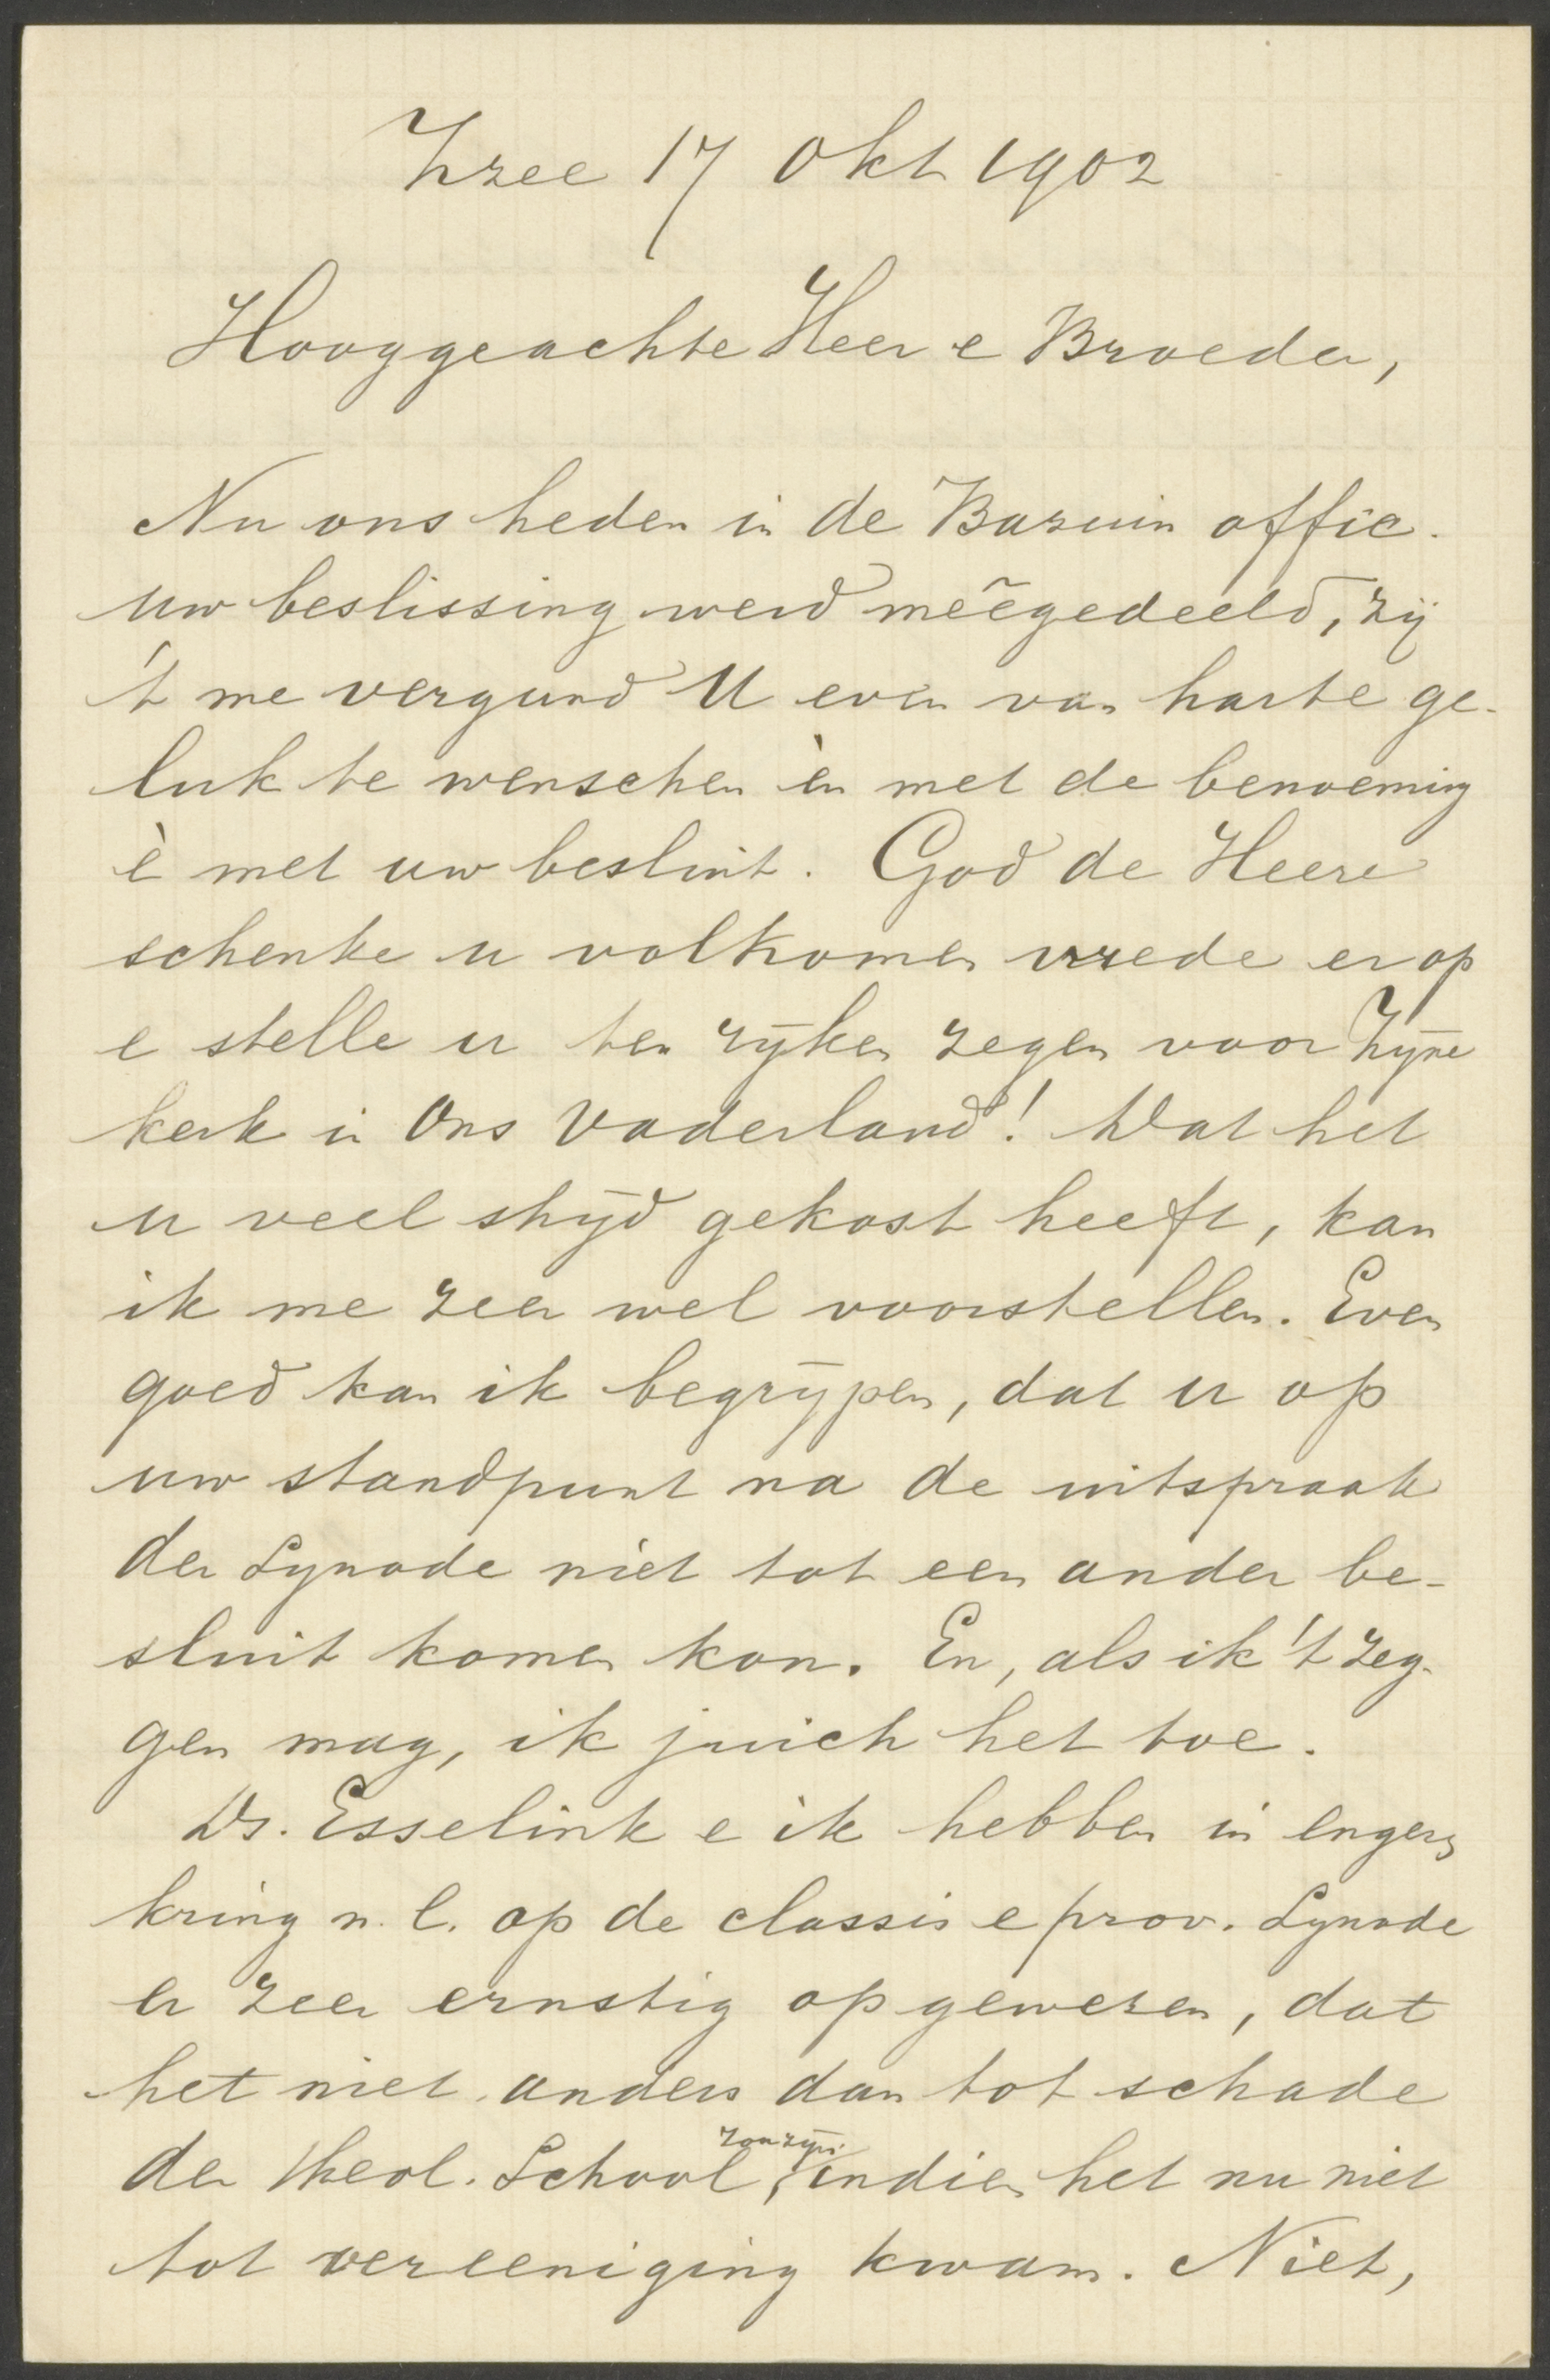 Zzee 17 Okt 1902
Hooggeachte Heer e Broeder,
Nu ons heden in de Bazuin offic.
uw beslissing werd meêgedeeld, zij
't me vergund U even van harte ge-
luk te wenschen èn met de benoeming
è met uw besluit. God de Heere
schenke u volkomen vrede er op
e stelle u ten rijken zegen voor Zijne
kerk in Ons Vaderland! Dat het
u veel strijd gekost heeft, kan
ik me zeer wel voorstellen. Even
goed kan ik begrijpen, dat u op
uw standpunt na de uitspraak
der Synode niet tot een ander be-
sluit komen kon. En, als ik 't zeg-
gen mag, ik juich het toe.
Ds. Esselink e ik hebben in engeren
kring n. l. op de classis e prov. Synode
er zeer ernstig op gewezen, dat
het niet anders dan tot schade
der Theol. School zou zijn, indien het nu niet
tot vereeniging kwam. Niet,